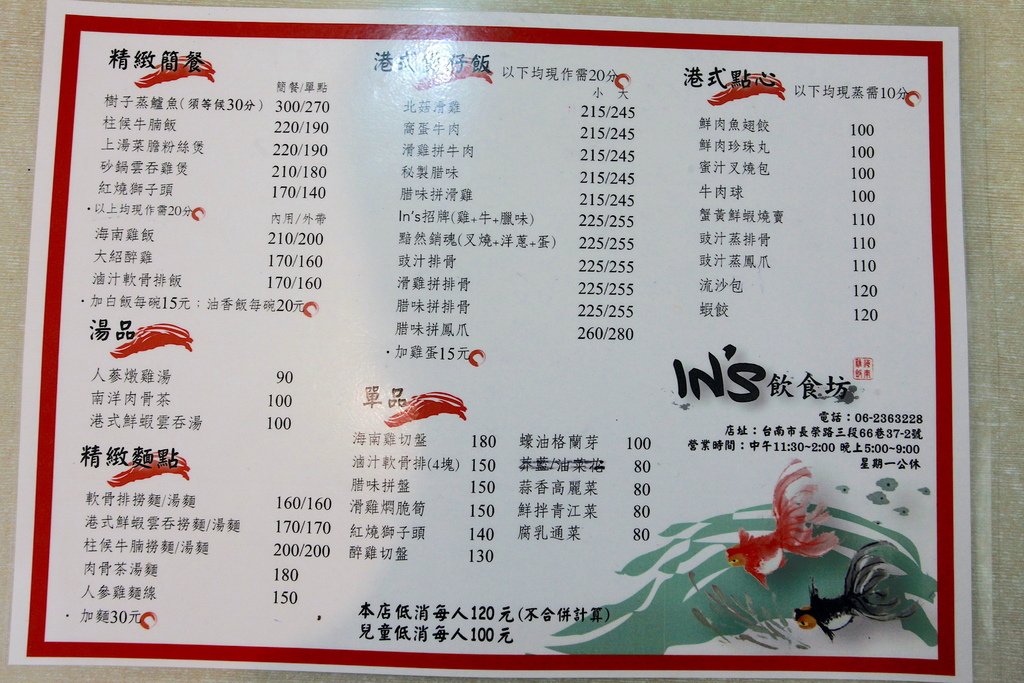 精緻簡餐
簡餐/單點
樹子蒸鱸魚(須等候30分) 300/270
柱候牛腩飯 220/190
上湯菜膽粉絲煲 220/190
砂鍋雲吞雞煲 210/180
紅燒獅子頭 170/140
·以上均現作需20分
內用/外帶
海南雞飯 210/200
大紹醉雞 170/160
滷汁軟骨排飯 170/160
·加白飯每碗15元；油香飯每碗20元
湯品
人蔘燉雞湯 90
南洋肉骨茶 100
港式鮮蝦雲吞湯 100
精緻麵點
軟骨排撈麵/湯麵 160/160
港式鮮蝦雲吞撈麵/湯麵 170/170
柱候牛腩撈麵/湯麵 200/200
肉骨茶湯麵 180
人參雞麵線 150
·加麵30元
港式煲仔飯 以下均現作需20分
小 大
北菇滑雞 215/245
窩蛋牛肉 215/245
滑雞拼牛肉 215/245
秘製腊味 215/245
腊味拼滑雞 215/245
In's招牌(雞+牛+臘味) 225/255
黯然銷魂(叉燒+洋蔥+蛋) 225/255
豉汁排骨 225/255
滑雞拼排骨 225/255
腊味拼排骨 225/255
腊味拼鳳爪 260/280
·加雞蛋15元
單品
海南雞切盤 180
滷汁軟骨排(4塊) 150
腊味拼盤 150
滑雞燜脆筍 150
紅燒獅子頭 140
醉雞切盤 130
蠔油格蘭芽 100
芥藍/油菜花 80
蒜香高麗菜 80
鮮拌青江菜 80
腐乳通菜 80
本店低消每人120元(不合併計算)
兒童低消每人100元
港式點心 以下均現蒸需10分
鮮肉魚翅餃 100
鮮肉珍珠丸 100
蜜汁叉燒包 100
牛肉球 100
蟹黃鮮蝦燒賣 110
豉汁蒸排骨 110
豉汁蒸鳳爪 110
流沙包 120
蝦餃 120
IN'S飲食坊
電話：06-2363228
店址：台南市長榮路三段66巷37-2號
營業時間：中午11:30~2:00 晚上5:00~9:00
星期一公休